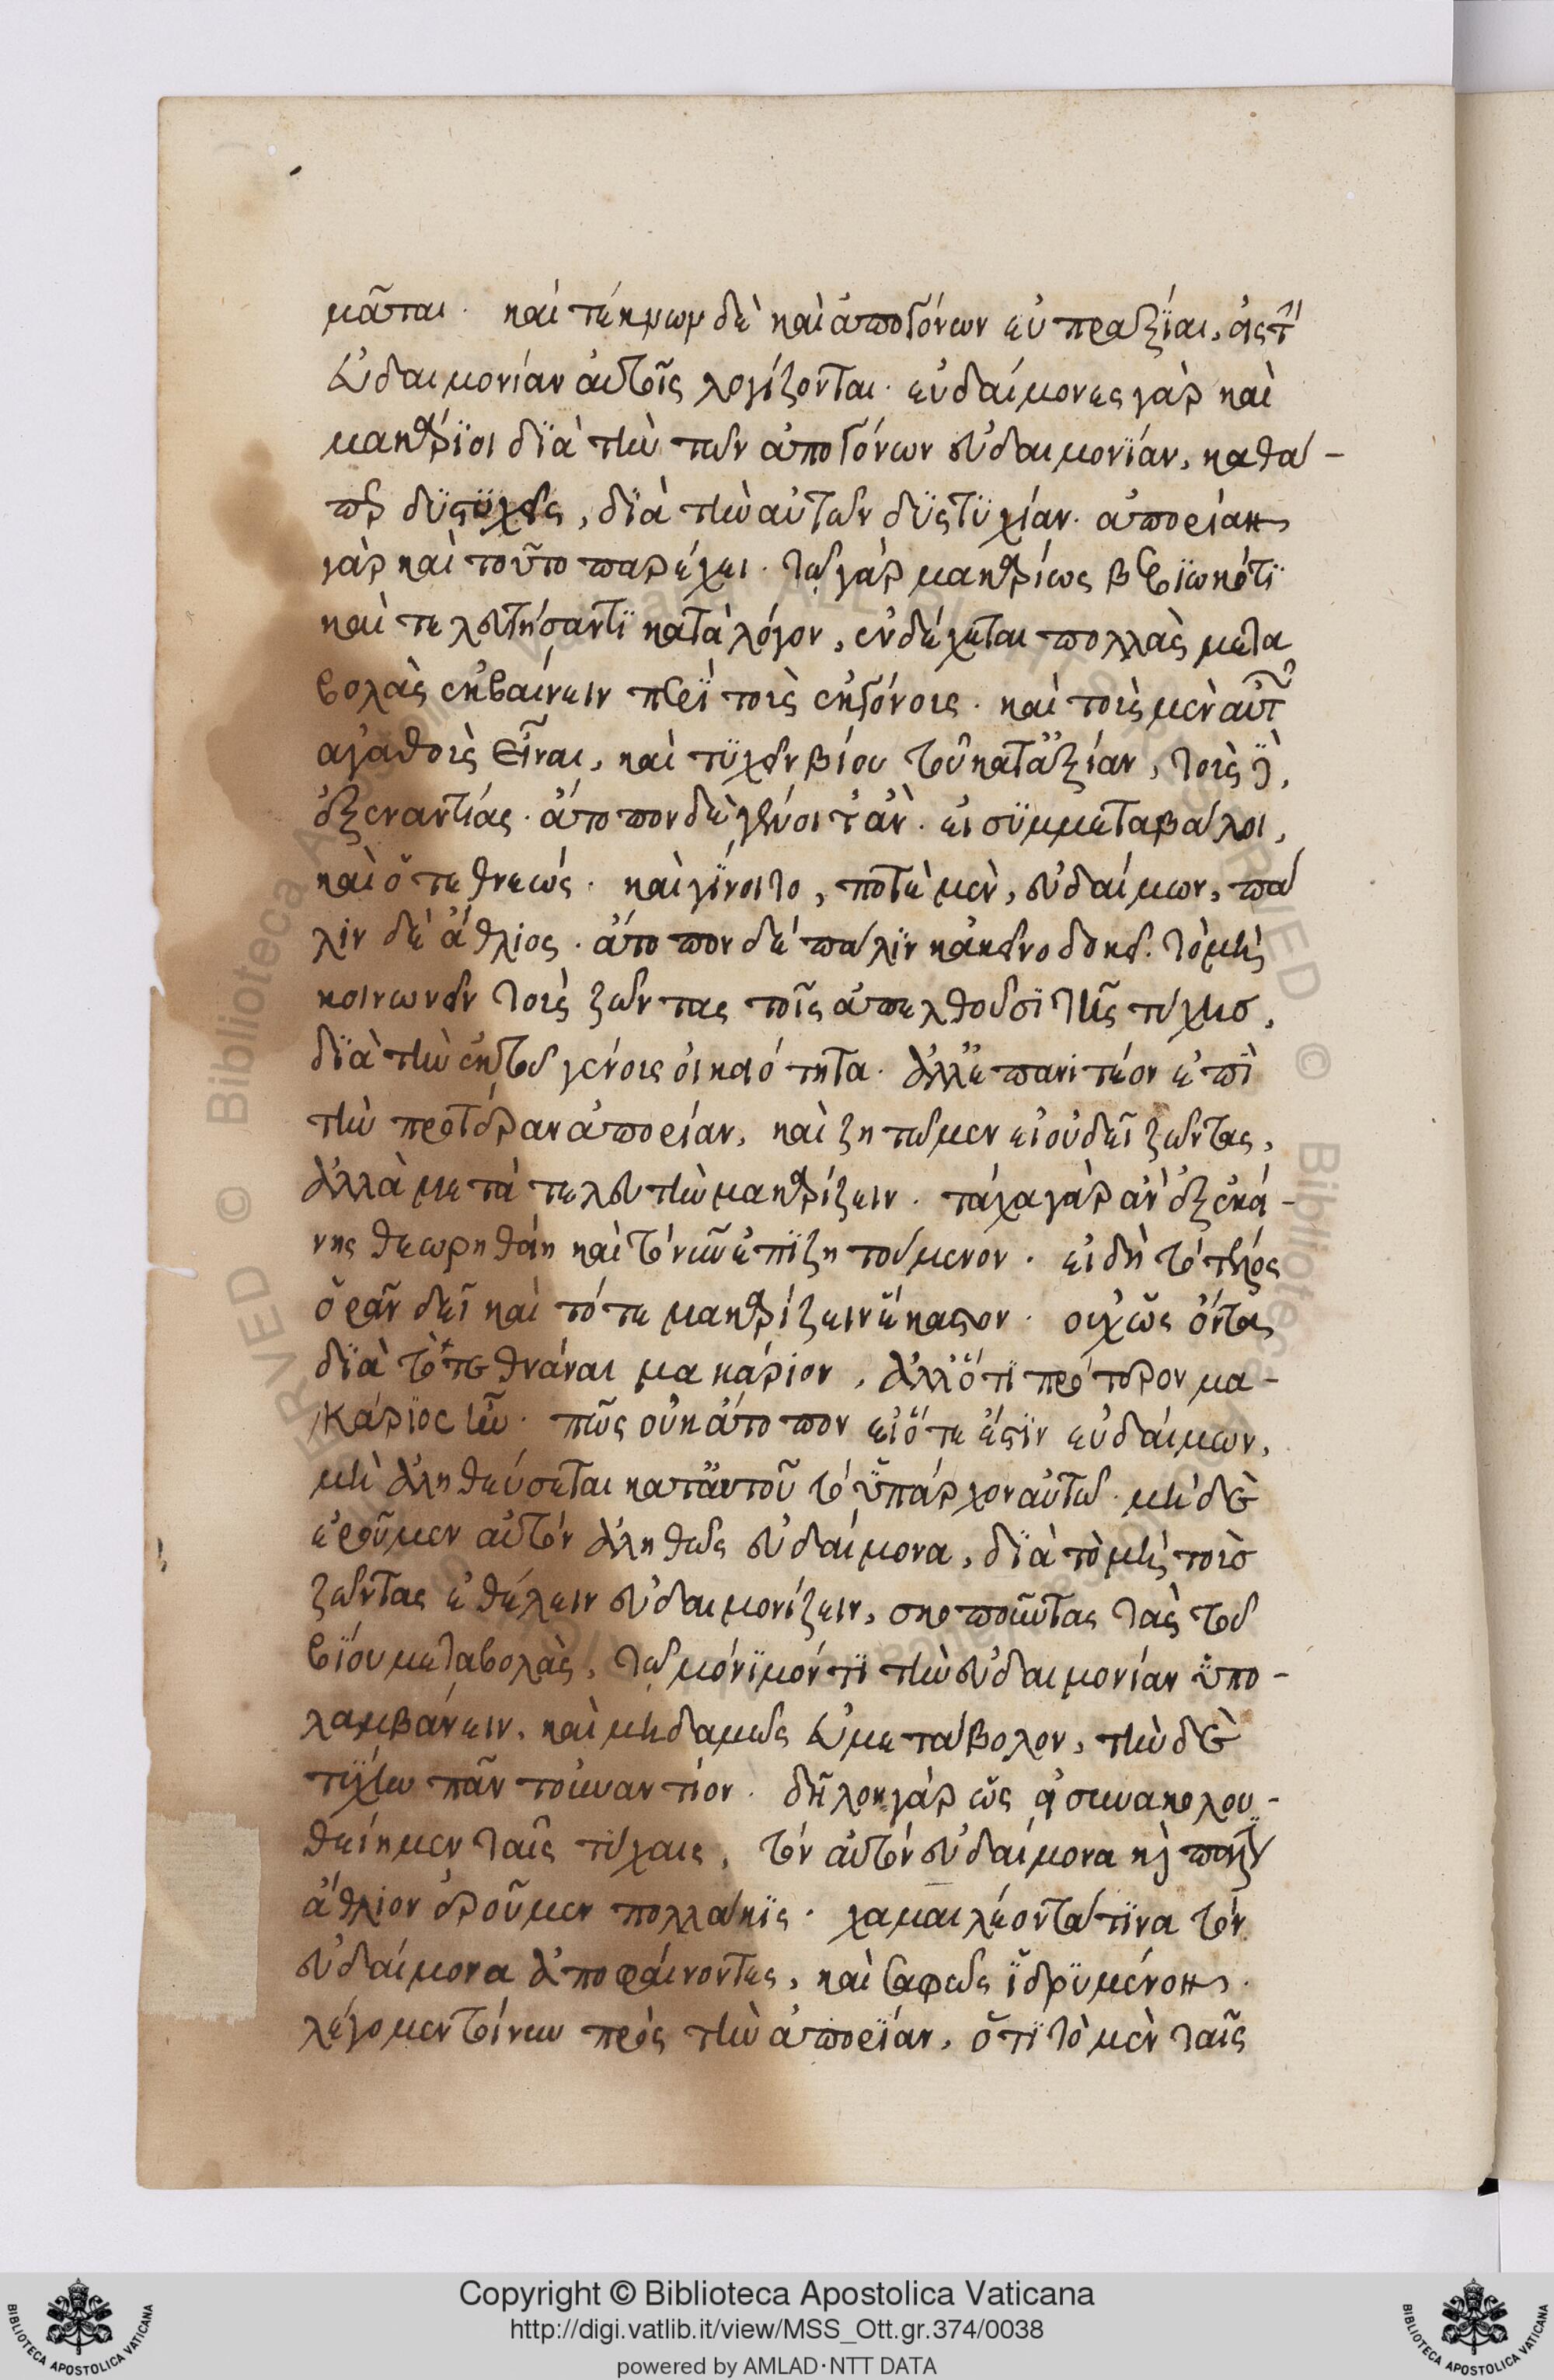 μᾶται. καὶ τέκνων δὲ καὶ ἀπογόνων εὐπραξίαι, εἰς τ(ὴν)
εὐδαιμονίαν αὐτοῖς λογίζονται. εὐδαίμονες γὰρ καὶ
μακάριοι διὰ τὴν τῶν ἀπογόνων εὐδαιμονίαν, καθά-
περ δυστυχεῖς, διὰ τὴν αὐτῶν δυστυχίαν. ἀπορίαν
γὰρ καὶ τοῦτο παρέχει. τῷ γὰρ μακαρίως βεβιωκότι
καὶ τελευτήσαντι κατὰ λόγον, ἐνδέχεται πολλὰς μετα
βολὰς ἐκβαίνειν περὶ τοὺς ἐκγόνους. καὶ τοὺς μὲν αὐτ(ῶν)
ἀγαθοὺς εἶναι, καὶ τυχεῖν βίου τοῦ κατ' ἀξίαν, τοὺς δὲ,
ἐξεναντίας. ἄτοπον δὲ γένοιτ' ἂν. εἰ συμμεταβάλοι,
καὶ ὁ τεθνεώς. καὶ γίνοιτο, ποτὲ μὲν, εὐδαίμων, πά
λιν δὲ ἄθλιος. ἄτοπον δὲ πάλιν κἀκεῖνο δοκεῖ. τὸ μὴ
κοινωνεῖν τοὺς ζῶντας τοῖς ἀπελθοῦσι τῆς τύχης,
διὰ τὴν ἐκ τοῦ γένους οἰκειότητα. ἀλλ' ἐπανιτέον ἐπὶ
τὴν προτέραν ἀπορίαν, καὶ ζητῶμεν εἰ οὐ δεῖ ζῶντας,
ἀλλὰ μετὰ τελευτὴν μακαρίζειν. τάχα γὰρ ἂν ἐξ ἐκεί-
νης θεωρηθείη καὶ τὸ νῦν ἐπιζητούμενον. εἰ δὴ τὸ τέλος
ὁρᾶν δεῖ καὶ τότε μακαρίζειν ἕκαστον. οὐχ ὡς ὄντα
διὰ τὸ τεθνάναι μακάριον, ἀλλ' ὅτι πρότερον μα-
κάριος ἦν. πῶς οὐκ ἄτοπον εἰ ὅτε ἐστὶν εὐδαίμων,
μὴ ἀληθεύσεται κατ' αὐτοῦ τὸ ὑπάρχον αὐτῷ. μὴ δὲ
ἐροῦμεν αὐτὸν ἀληθῶς εὐδαίμονα, διὰ τὸ μὴ τοὺς
ζῶντας ἐθέλειν εὐδαιμονίζειν, σκοποῦντας τὰς τοῦ
βίου μεταβολὰς, τῷ μόνιμόν τι τὴν εὐδαιμονίαν ὑπο-
λαμβάνειν, καὶ μηδαμῶς εὐμετάβολον, τὴν δὲ
τύχην πᾶν τοὐναντίον. δῆλον γὰρ ὡς εἰ συνακολου-
θείημεν ταῖς τύχαις, τὸν αὐτὸν εὐδαίμονα κ(αὶ) πάλιν
ἄθλιον ἐροῦμεν πολλάκις. χαμαιλέοντά τινα τὸν
εὐδαίμονα ἀποφαίνοντες, καὶ σαφῶς ἱδρυμένον.
λέγομεν τοίνυν πρὸς τὴν ἀπορίαν, ὅτι τὸ μὲν ταῖς
Copyright © Biblioteca Apostolica Vaticana
http://digi.vatlib.it/view/MSS_Ott.gr.374/0038
powered by AMLAD·NTT DATA